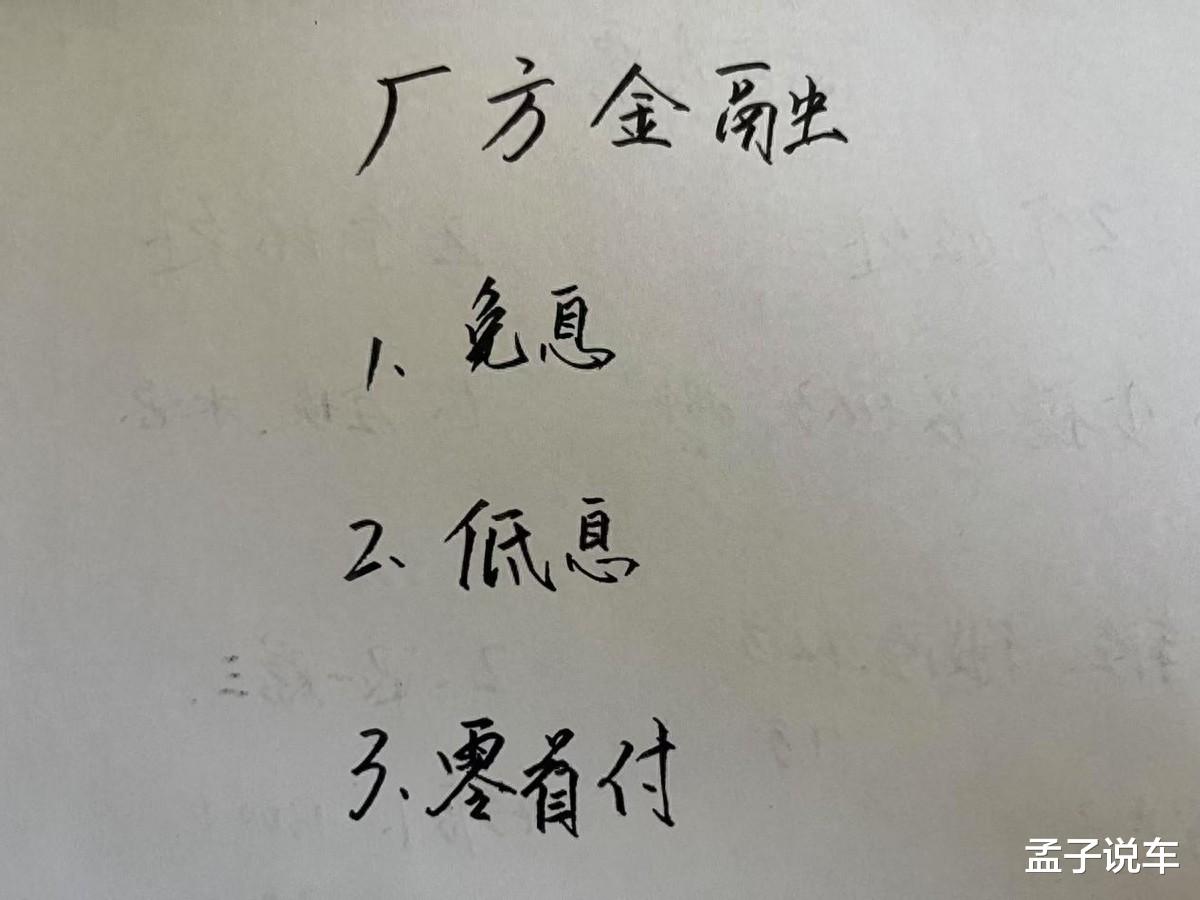 厂方金融
1、免息
2、低息
3、零首付
孟子说车